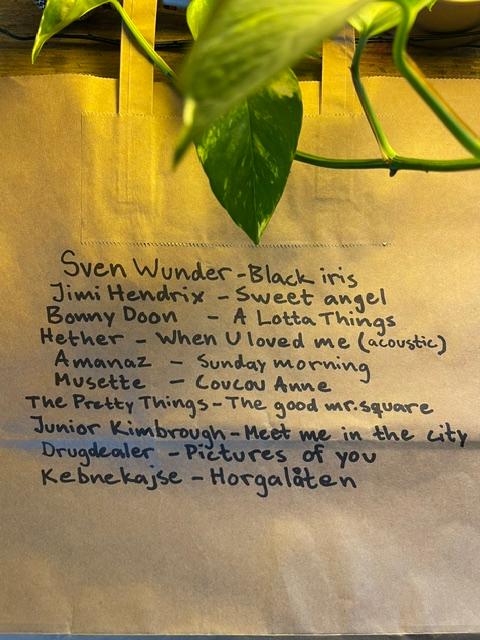 Sven Wunder - Black iris
Jimi Hendrix - Sweet angel
Bonny Doon - A Lotta Things
Hether - When U loved me (acoustic)
Amanaz - Sunday morning
Musette - Coucou Anne
The Pretty Things - The good mr.square
Junior Kimbrough - Meet me in the city
Drugdealer - Pictures of you
Kebnekajse - Horgalåten